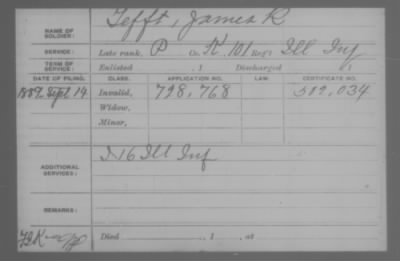 NAME OF SOLDIER: Tefft, James R
SERVICE: Late rank, P Co. K, 101 Reg't Ill Inf
TERM OF SERVICE: Enlisted , 1 Discharged , 1
DATE OF FILING. CLASS. APPLICATION NO. LAW. CERTIFICATE NO.
1889 Sept 14 Invalid, 728,768 512,034
Widow,
Minor,
ADDITIONAL SERVICES: I 16 Ill Inf
REMARKS:
Died , 1 , at